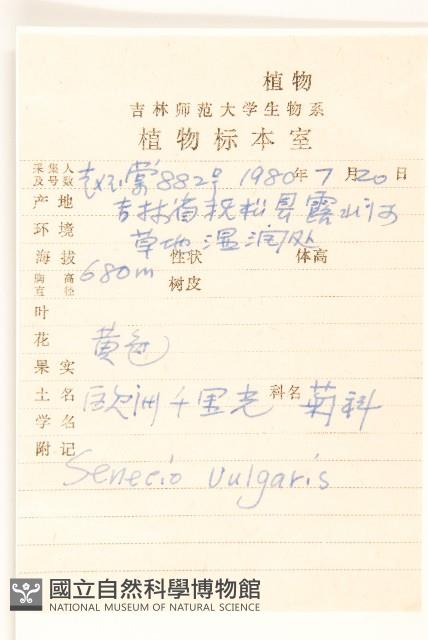 植物
吉林师范大学生物系
植物标本室
采集人及号数 赵玉棠882号 1980年7月20日
产地 吉林省抚松县露水河
环境 草地湿润处
海拔 680m 性状 体高
胸高直径 树皮
叶
花 黄色
果实
土名 欧洲千里光 科名 菊科
学名
附记 Senecio vulgaris
國立自然科學博物館
NATIONAL MUSEUM OF NATURAL SCIENCE